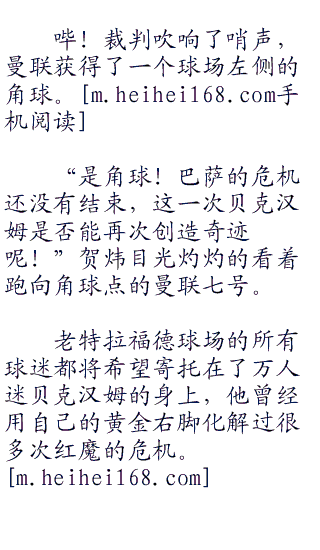 哗！裁判吹响了哨声，
曼联获得了一个球场左侧的
角球。[m.heihei168.com手
机阅读]
“是角球！巴萨的危机
还没有结束，这一次贝克汉
姆是否能再次创造奇迹
呢！”贺炜目光灼灼的看着
跑向角球点的曼联七号。
老特拉福德球场的所有
球迷都将希望寄托在了万人
迷贝克汉姆的身上，他曾经
用自己的黄金右脚化解过很
多次红魔的危机。
[m.heihei168.com]